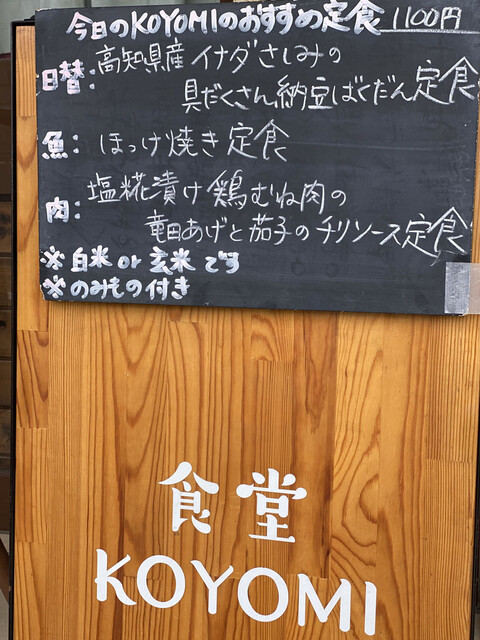 今日のKOYOMIのおすすめ定食 1100円
日替:高知県産イナダさしみの
具だくさん納豆ばくだん定食
魚:ほっけ焼き定食
肉:塩糀漬け鶏むね肉の
竜田あげと茄子のチリソース定食
※白米or玄米です
※のみもの付き
食堂
KOYOMI